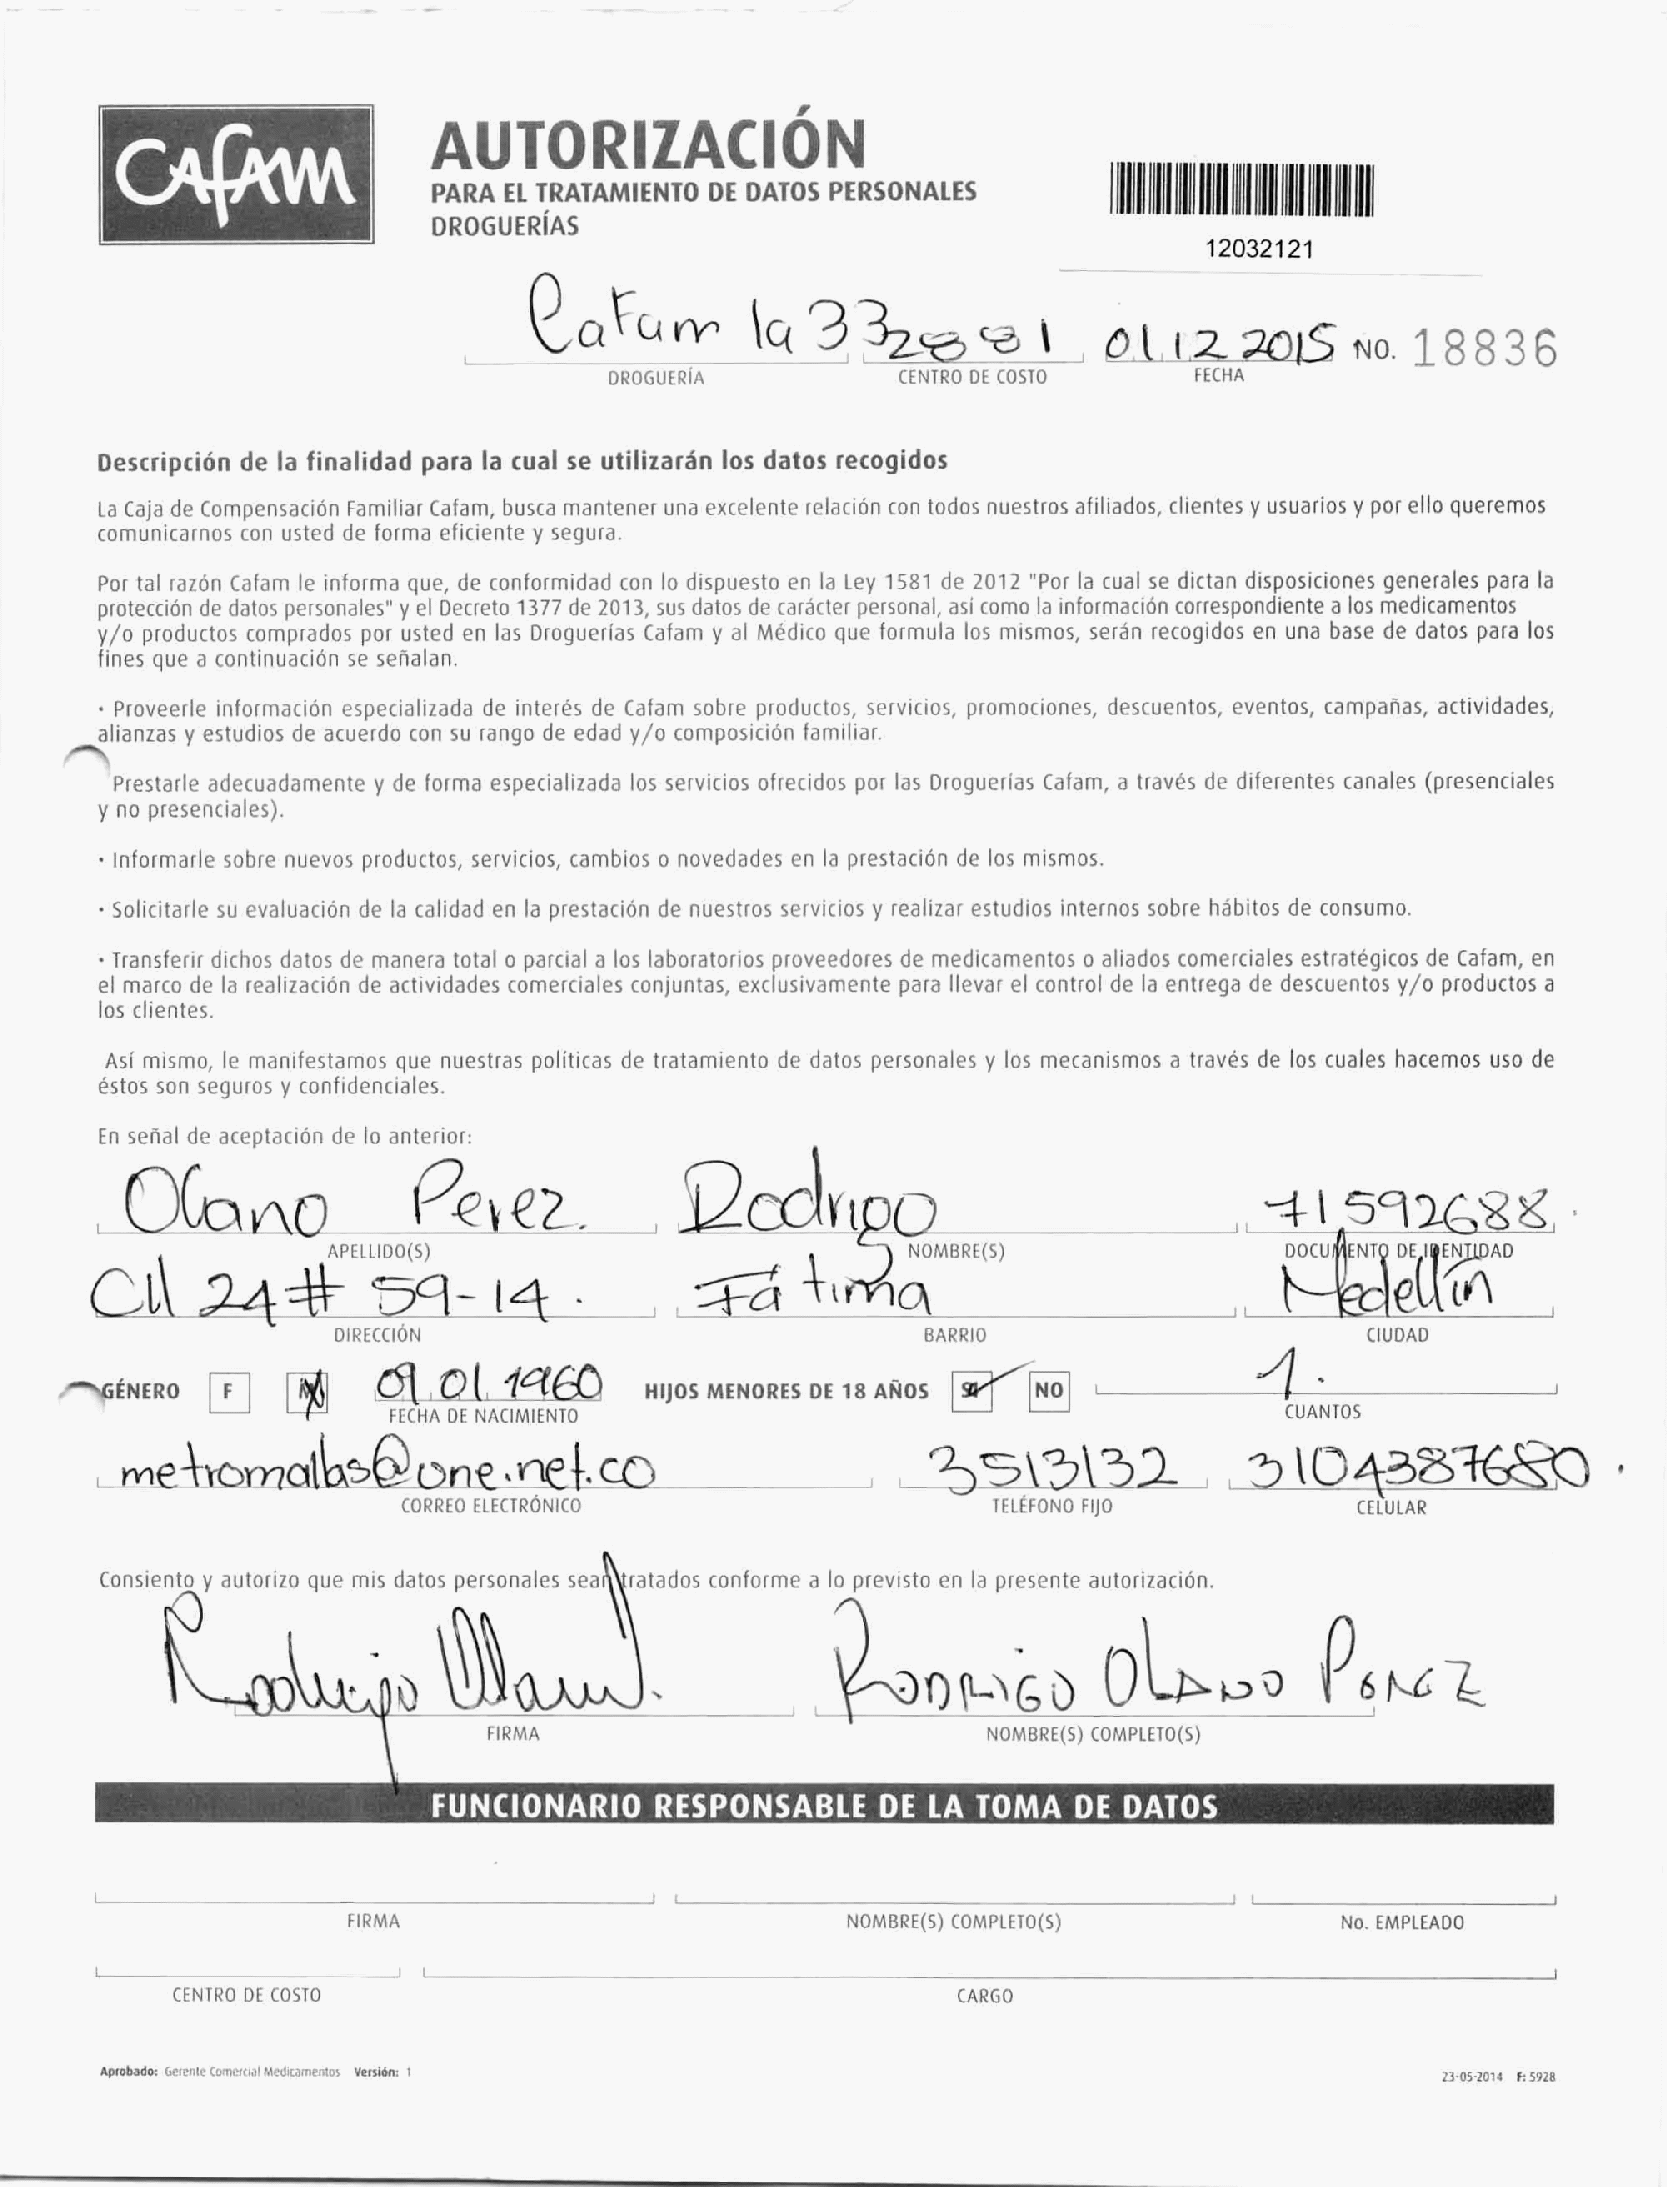 CAFAM
AUTORIZACIÓN
PARA EL TRATAMIENTO DE DATOS PERSONALES
DROGUERÍAS
12032121
Cafam la 33 2881 01.12.2015 NO. 18836
DROGUERÍA CENTRO DE COSTO FECHA
Descripción de la finalidad para la cual se utilizarán los datos recogidos
La Caja de Compensación Familiar Cafam, busca mantener una excelente relación con todos nuestros afiliados, clientes y usuarios y por ello queremos
comunicarnos con usted de forma eficiente y segura.
Por tal razón Cafam le informa que, de conformidad con lo dispuesto en la Ley 1581 de 2012 "Por la cual se dictan disposiciones generales para la
protección de datos personales" y el Decreto 1377 de 2013, sus datos de carácter personal, así como la información correspondiente a los medicamentos
y/o productos comprados por usted en las Droguerías Cafam y al Médico que formula los mismos, serán recogidos en una base de datos para los
fines que a continuación se señalan.
· Proveerle información especializada de interés de Cafam sobre productos, servicios, promociones, descuentos, eventos, campañas, actividades,
alianzas y estudios de acuerdo con su rango de edad y/o composición familiar.
Prestarle adecuadamente y de forma especializada los servicios ofrecidos por las Droguerías Cafam, a través de diferentes canales (presenciales
y no presenciales).
· Informarle sobre nuevos productos, servicios, cambios o novedades en la prestación de los mismos.
· Solicitarle su evaluación de la calidad en la prestación de nuestros servicios y realizar estudios internos sobre hábitos de consumo.
· Transferir dichos datos de manera total o parcial a los laboratorios proveedores de medicamentos o aliados comerciales estratégicos de Cafam, en
el marco de la realización de actividades comerciales conjuntas, exclusivamente para llevar el control de la entrega de descuentos y/o productos a
los clientes.
Así mismo, le manifestamos que nuestras políticas de tratamiento de datos personales y los mecanismos a través de los cuales hacemos uso de
éstos son seguros y confidenciales.
En señal de aceptación de lo anterior:
Olano Perez. Rodrigo 71592688.
APELLIDO(S) NOMBRE(S) DOCUMENTO DE IDENTIDAD
Cll 24 # 59-14. Fátima Medellín
DIRECCIÓN BARRIO CIUDAD
GÉNERO F M 09.01.1960 HIJOS MENORES DE 18 AÑOS SI NO 1.
FECHA DE NACIMIENTO CUANTOS
metromallas@une.net.co 3513132 3104387680.
CORREO ELECTRÓNICO TELÉFONO FIJO CELULAR
Consiento y autorizo que mis datos personales sean tratados conforme a lo previsto en la presente autorización.
Rodrigo Olano RODRIGO OLANO PEREZ
FIRMA NOMBRE(S) COMPLETO(S)
FUNCIONARIO RESPONSABLE DE LA TOMA DE DATOS
FIRMA NOMBRE(S) COMPLETO(S) No. EMPLEADO
CENTRO DE COSTO CARGO
Aprobado: Gerente Comercial Medicamentos Versión: 1
23-05-2014 F: 5928